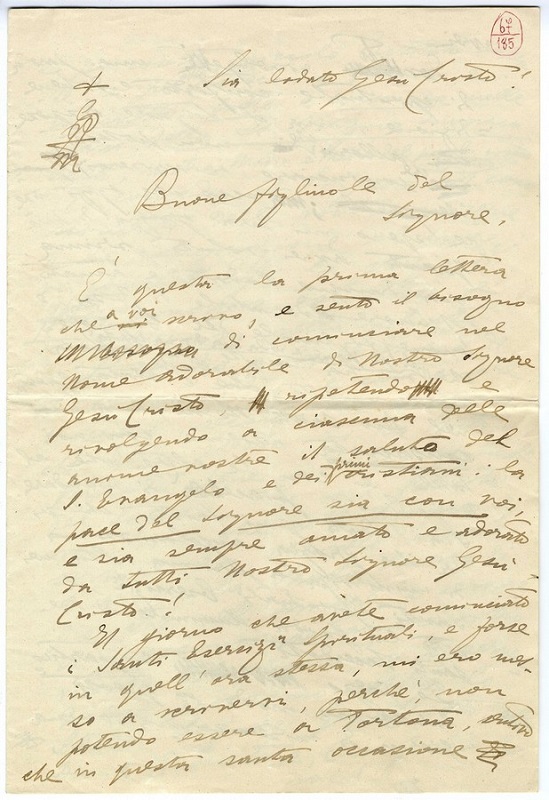 67
185
Sia lodato Gesù Cristo!
+
Buone figliuole del
Signore,
È questa la prima lettera
che a voi scrivo, e sento il bisogno
di cominciare nel
Nome adorabile di Nostro Signore
Gesù Cristo, ripetendo e
rivolgendo a ciascuna delle
anime vostre il saluto del
S. Evangelo e dei primi cristiani: la
pace del Signore sia con voi,
e sia sempre amato e adorato
da tutti Nostro Signore Gesù
Cristo!
Il giorno che avete cominciato
i Santi Esercizi Spirituali, e forse
in quell'ora stessa, mi ero mes-
so a scrivervi, perché, non
potendo essere a Tortona,
che in questa santa occasione